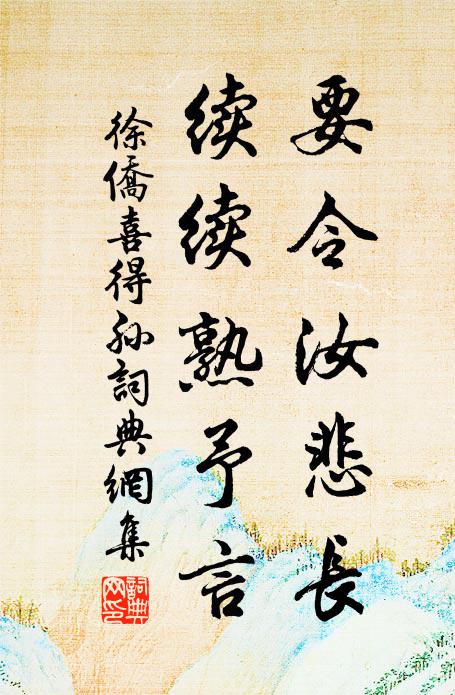 要令汝悲長
续续熟予言
徐僑喜得孙詞典網集
詞典網印